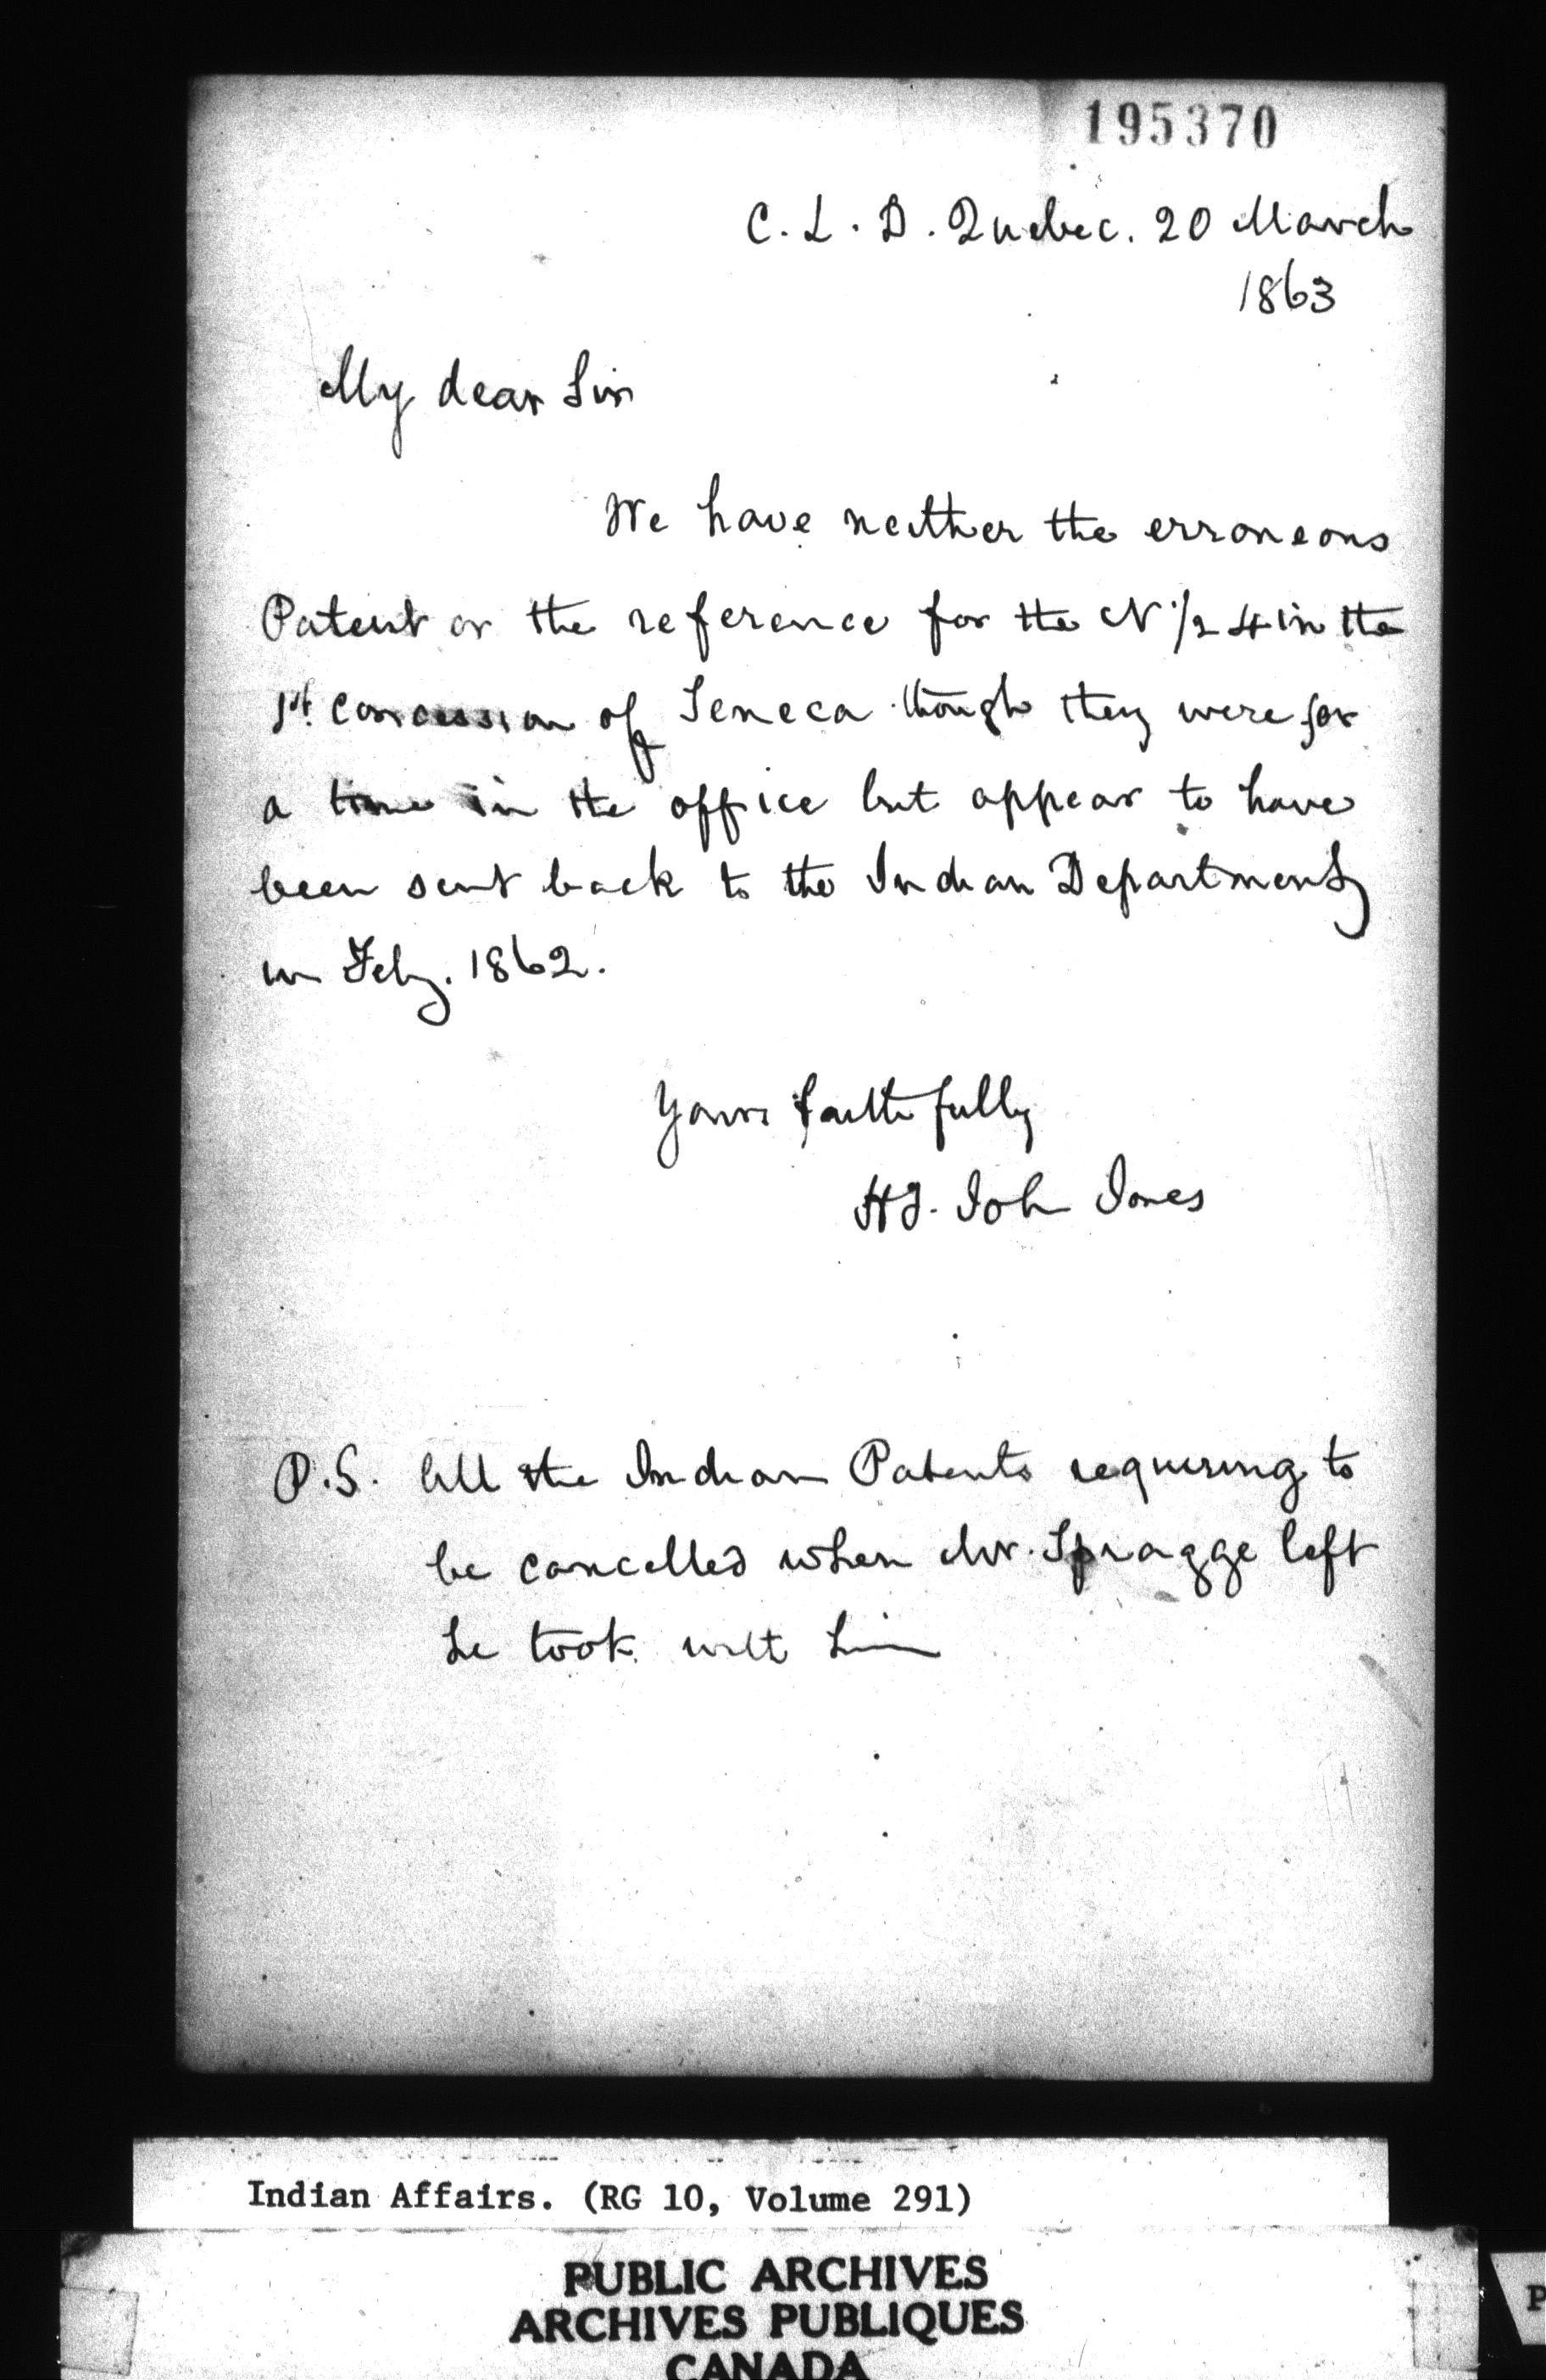 195370
C. L. D. Quebec. 20 March
1863
My dear Sir
We have neither the erroneous
Patent or the reference for the N 1/2 4 in the
1st. Concession of Seneca though they were for
a time in the office but appear to have
been sent back to the Indian Department
in Feby. 1862.
Yours faithfully
H J. Joh Jones
P.S. All the Indian Patents requiring to
be cancelled when Mr. Spragge left
he took with him
Indian Affairs. (RG 10, Volume 291)
PUBLIC ARCHIVES
ARCHIVES PUBLIQUES
CANADA
P